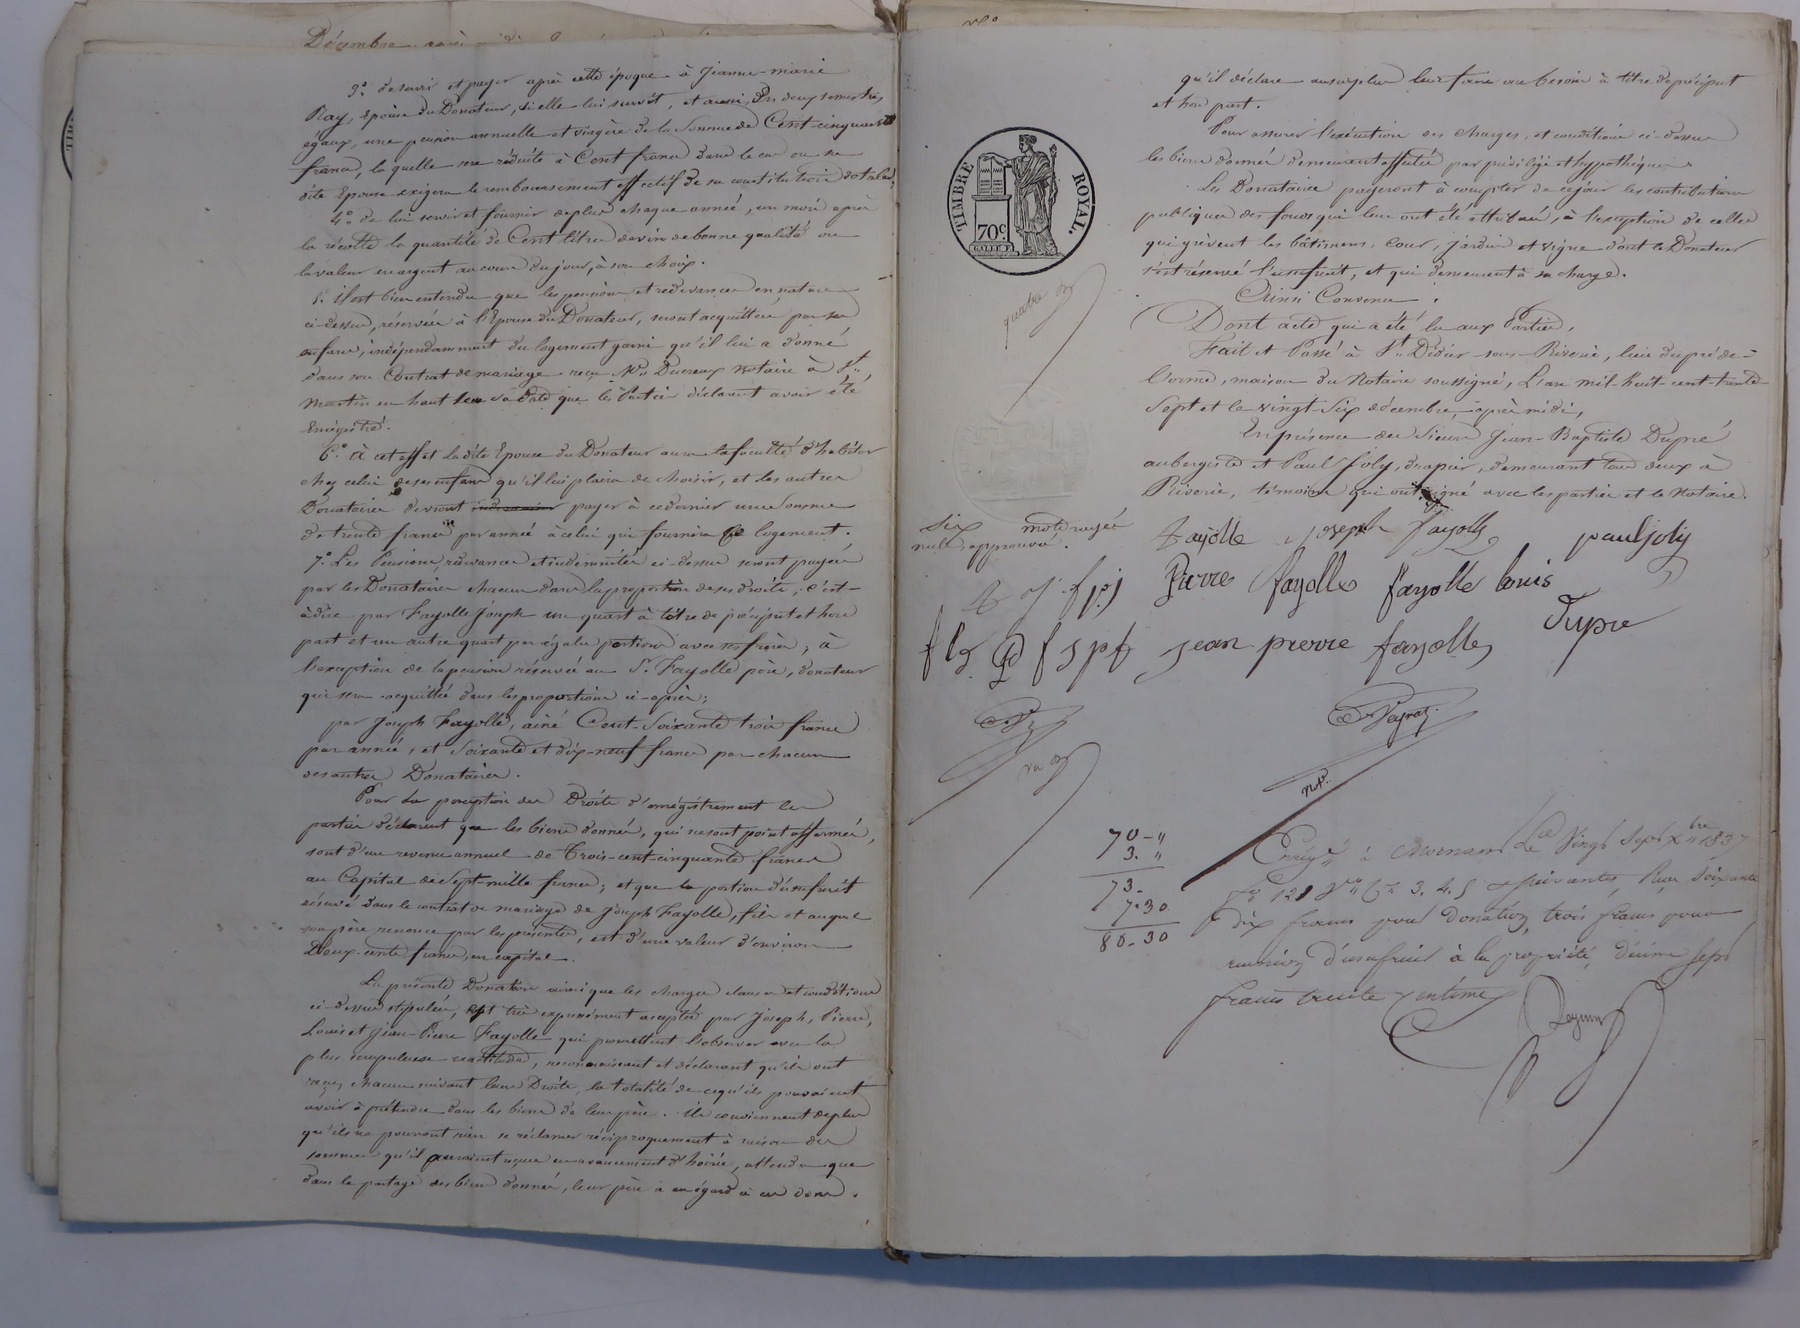 3.° de servir et payer après cette époque à Jeanne-marie
Ray, épouse du Donateur, si elle lui survit, et aussi En deux termes très
égaux, une pension annuelle et viagère de la Somme de Cent-cinquante
francs, la quelle sera réduite à Cent francs dans le cas ou sa
dite Epouse exigera le remboursement effectif de sa constitution dotale;
4.° de lui servir et fournir de plus chaque année, un mois après
la récolte la quantité de Cent litres de vin de bonne qualité ou
la valeur en argent au cours du jour, à son choix.
5.° il est bien entendu que les pensions et redevances en nature
ci-dessus, réservées à l'Epouse du Donateur, seront acquittées par ses
enfans, indépendamment du logement garni qu'il lui a donné
dans son Contrat de mariage reçu M.e Ducreux notaire à St.
Martin en haut à sa date que les Parties déclarent avoir été
Enrégistré.
6.° À cet effet la dite Epouse du Donateur aura la faculté d'habiter
chez celui de ses enfans qu'il lui plaira de choisir, et les autres
Donataires devront payer à ce dernier une Somme
de trente francs par année à celui qui fournira ce logement.
7.° Les Pensions, redevances et indemnités ci-dessus seront payées
par les Donataires chacun dans la proportion de ses droits; c'est-
à-dire par Fayolle Joseph un quart à titre de préciput et hors
part et un autre quart par égale portion avec ses frères; à
l'exception de la pension réservée au S.r Fayolle père, donateur
qui sera acquittée dans les proportions ci-après;
par Joseph Fayolle, ainé Cent-Soixante trois francs
par année, et Soixante et dix-neuf francs par chacun
des autres Donataires.
Pour la perception des Droits d'enrégistrement les
parties déclarent que les biens donnés, qui ne sont point affermés,
sont d'un revenu annuel de Trois-cent-cinquante francs
au Capital de Sept mille francs; et que la portion d'usufruit
réservé dans le contrat de mariage de Joseph Fayolle, fils et auquel
son père renonce par les présentes, est d'une valeur d'environ
Deux-cents francs, en capital.
La présente Donation ainsi que les charges clauses et conditions
ci-dessus stipulées, est très expressément acceptée par Joseph, Pierre,
Louis et Jean-Pierre Fayolle qui promettent l'observer avec la
plus scrupuleuse exactitude, reconnaissant et déclarant qu'ils ont
reçu, chacun suivant leurs Droits, la totalité de ce qu'ils pouvaient
avoir à prétendre dans les biens de leur père. Ils conviennent de plus
qu'ils ne pourront rien se réclamer réciproquement à raison des
sommes qu'il auraient reçues en avancement d'hoirie, attendu que
dans le partage des biens donnés, leur père a eu égard à ces dons.
qu'il déclare au surplus leur faire au besoin à titre de préciput
et hors part.
Pour assurer l'exécution des charges, et conditions ci-dessus
les biens donnés demeurent affectés par privilège et hypothèques.
Les Donataires payeront à compter de ce jour les contributions
publiques des fonds qui leur ont été attribués, à l'exception de celles
qui grèvent les bâtimens, cour, jardin et vigne dont le Donateur
s'est réservé l'usufruit, et qui demeurent à sa charge.
Ainsi Convenu.
Dont acte qui a été lu aux Parties,
Fait et Passé à St. Didier-sous-Riverie, lieu du pré de-
l'orme, maison du Notaire soussigné, L'an mil-huit-cent-trente
Sept et le vingt-Six décembre, après midi,
En présence des Sieurs Jean-Baptiste Dupré
aubergiste et Paul Joly, drapier, demeurant tous deux à
Riverie, témoins qui ont signé avec les parties et le Notaire.
TIMBRE ROYAL.
70c.
Six mots rayés
nuls, approuvé.
fayolle joseph fayolle paul joly
pierre fayolle fayolle louis
jean pierre fayolle Dupré
Peyrat
not.
70-"
3."
73-
7-30
80-30
Enrégé à Mornant Le Vingt Sept Xbre 1837
fo 121 Vo Ces 3. 4. 5 et suivantes, Reçu Soixante
dix francs pour donation, trois francs pour
reunion d'usufruit à la propriété, décime Sept
francs trente centimes